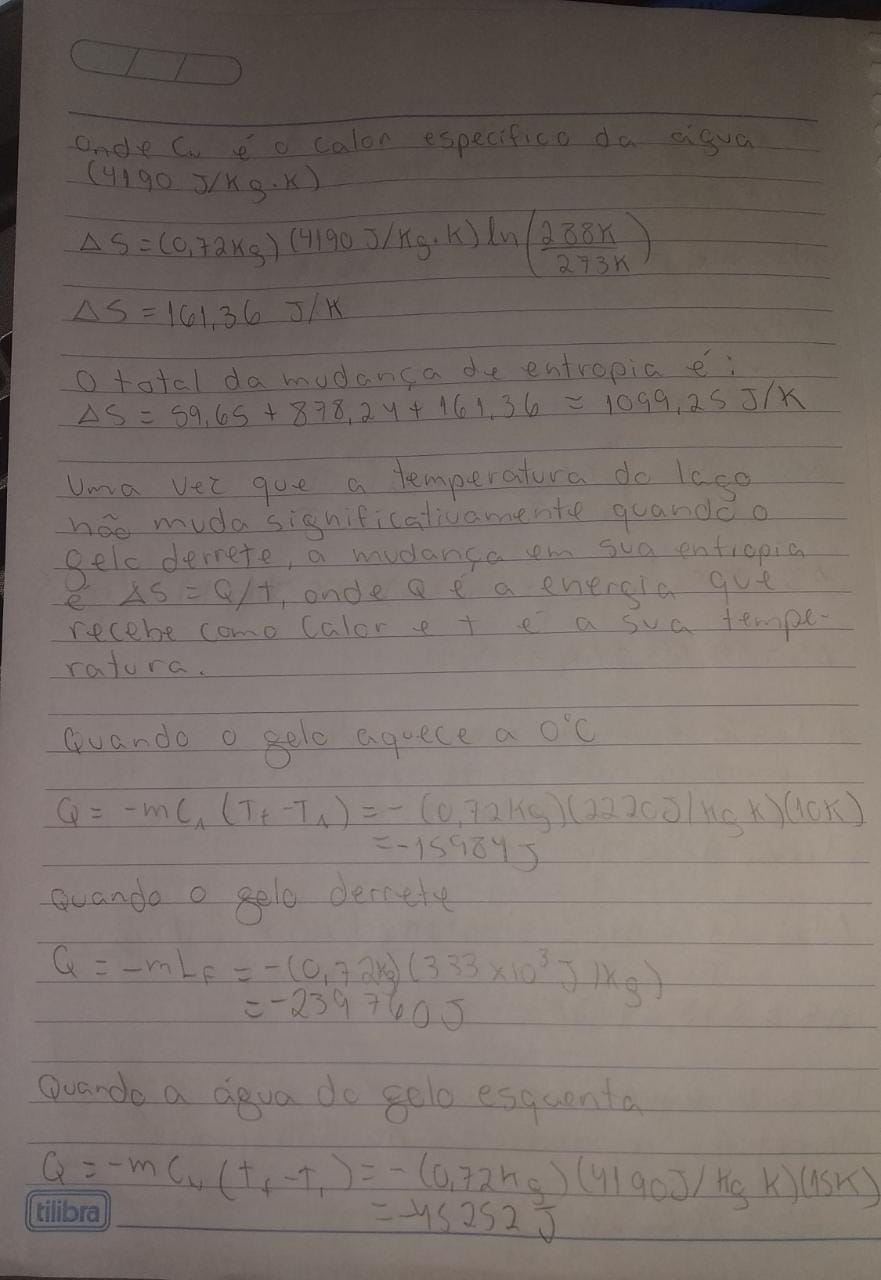 Onde Cw é o calor específico da água
(4190 J/Kg.K)
ΔS = (0,72Kg) (4190 J/Kg.K) ln (288K/273K)
ΔS = 161,36 J/K
O total da mudança de entropia é:
ΔS = 59,65 + 878,24 + 161,36 = 1099,25 J/K
Uma vez que a temperatura do lago
não muda significativamente quando o
gelo derrete, a mudança em sua entropia
é ΔS = Q/T, onde Q é a energia que
recebe como calor e T é a sua tempe-
ratura.
Quando o gelo aquece a 0°C
Q = -mC₁ (Tf - T₁) = - (0,72Kg)(2220J/Kg K)(10K)
= -15984J
Quando o gelo derrete
Q = -mLF = -(0,72Kg)(333 x10³ J/Kg)
= -239760J
Quando a água do gelo esquenta
Q = -mCw (Tf - T₁) = - (0,72Kg)(4190J/Kg K)(15K)
= -45252J
tilibra